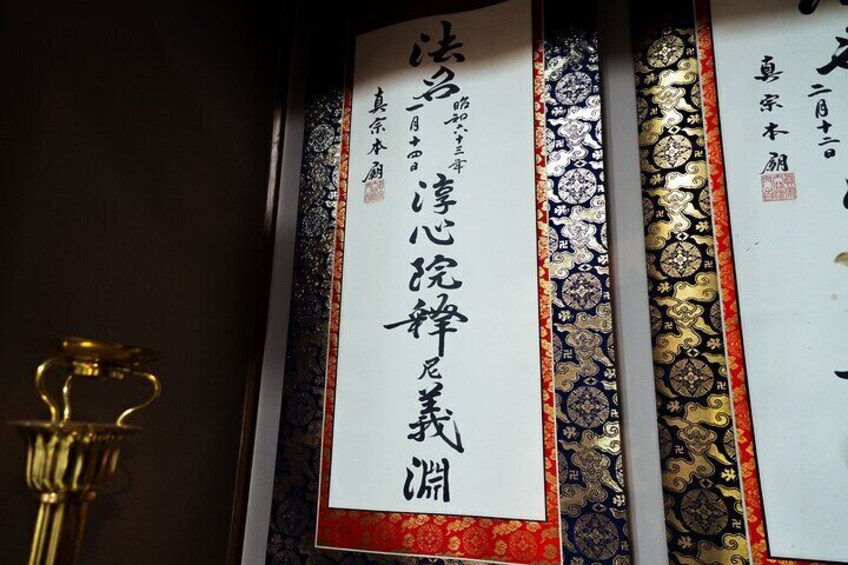 法名
昭和六十三年
一月十四日
淳心院釋尼義淵
真宗本廟
二月十二日
真宗本廟